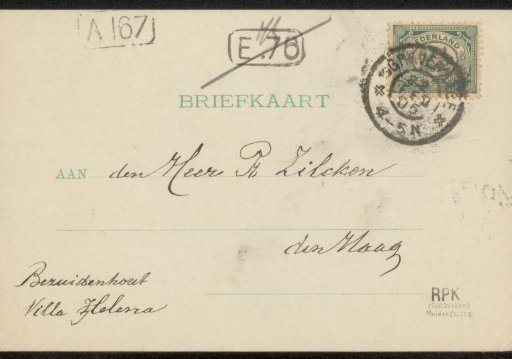 A 167
E.76
NEDERLAND
BRIEFKAART
4-5N
AAN den Heer Ph Zilcken
den Haag
Bezuidenhout
Villa Helena
RPK